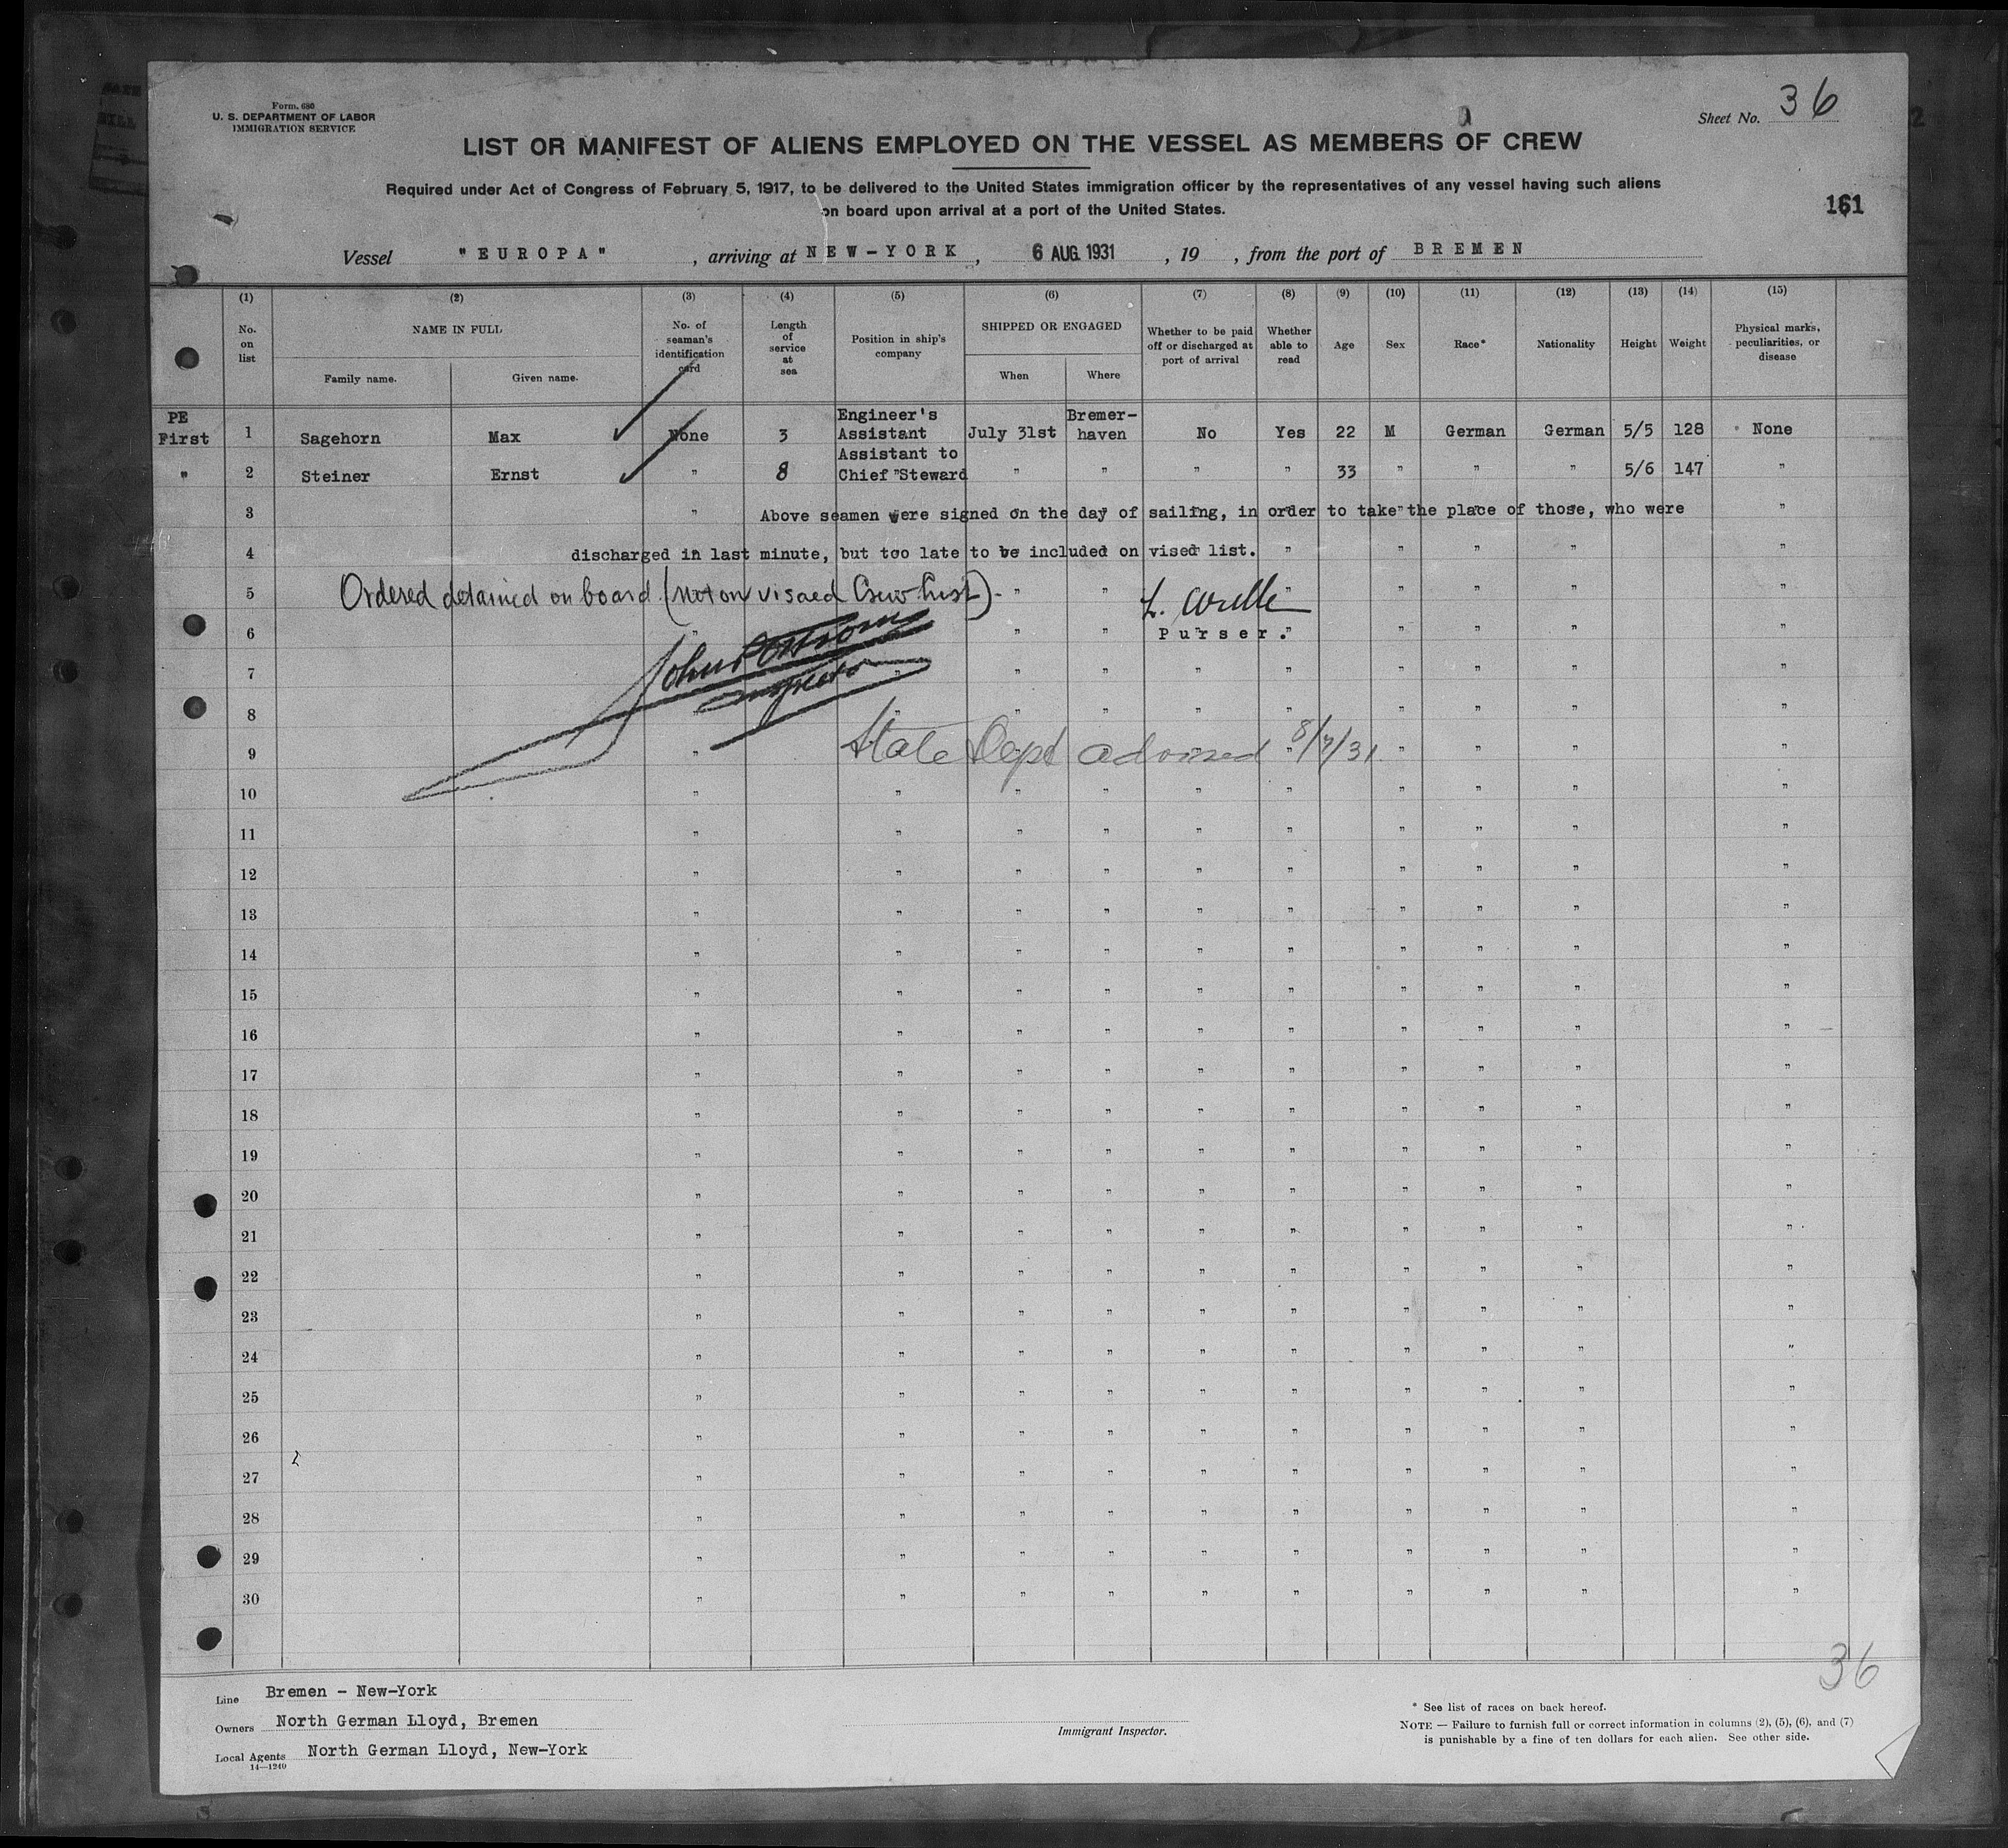 Form 680
U. S. DEPARTMENT OF LABOR
IMMIGRATION SERVICE
Sheet No. 36
LIST OR MANIFEST OF ALIENS EMPLOYED ON THE VESSEL AS MEMBERS OF CREW
Required under Act of Congress of February 5, 1917, to be delivered to the United States immigration officer by the representatives of any vessel having such aliens
on board upon arrival at a port of the United States.
161
Vessel "EUROPA" , arriving at NEW-YORK , 6 AUG 1931 , 19 , from the port of BREMEN
(1) (2) (3) (4) (5) (6) (7) (8) (9) (10) (11) (12) (13) (14) (15)
No. on list NAME IN FULL Family name. Given name. No. of seaman's identification card Length of service at sea Position in ship's company SHIPPED OR ENGAGED When Where Whether to be paid off or discharged at port of arrival Whether able to read Age Sex Race* Nationality Height Weight Physical marks, peculiarities, or disease
PE First 1 Sagehorn Max None 3 Engineer's Assistant July 31st Bremerhaven No Yes 22 M German German 5/5 128 None
" 2 Steiner Ernst " 8 Assistant to Chief Steward " " " " 33 " " " 5/6 147 "
3 Above seamen were signed on the day of sailing, in order to take the place of those, who were
4 discharged in last minute, but too late to be included on vised list.
5 Ordered detained on board (not on visaed Crew List).
6 Purser.
7 Inspector
8
9 State Dept advised 8/7/31
10
11
12
13
14
15
16
17
18
19
20
21
22
23
24
25
26
27
28
29
30
36
Line Bremen - New-York
Owners North German Lloyd, Bremen
Local Agents North German Lloyd, New-York
14—1240
Immigrant Inspector.
* See list of races on back hereof.
NOTE — Failure to furnish full or correct information in columns (2), (5), (6), and (7)
is punishable by a fine of ten dollars for each alien. See other side.